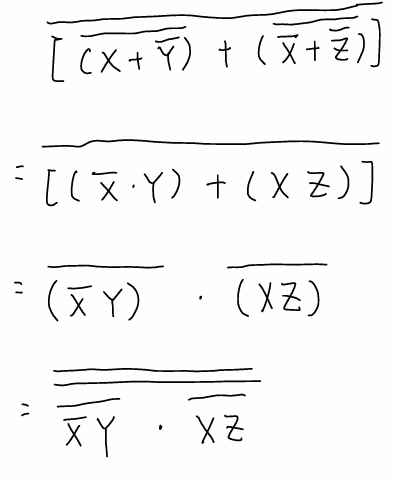 \overline{[\overline{(X+\overline{Y})} + (\overline{\overline{X}+\overline{Z}})]}
= \overline{[(\overline{X}·Y) + (XZ)]}
= \overline{(\overline{X}Y)} · \overline{(XZ)}
= \overline{\overline{\overline{\overline{X}Y} · \overline{XZ}}}